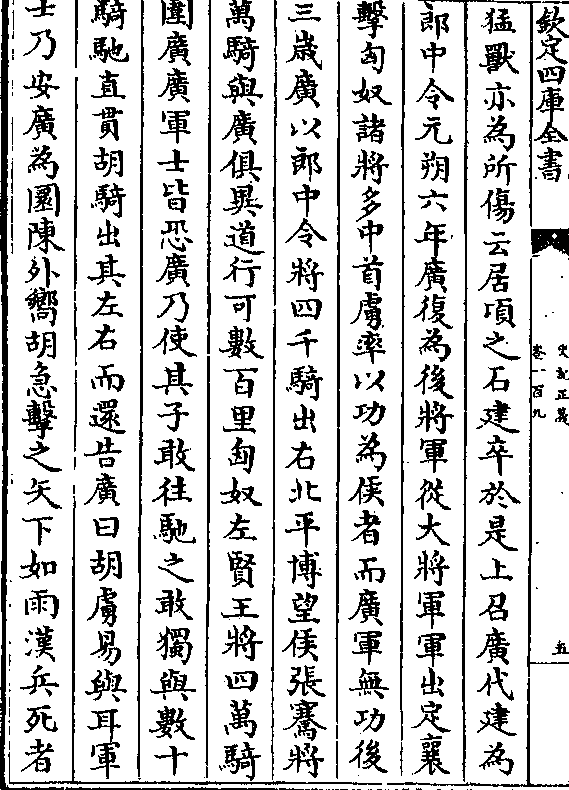 欽定四庫全書
史記正義
卷一百九
五
猛獸亦為所傷云居項之石建卒於是上召廣代建為
郎中令元朔六年廣復為後將軍從大將軍軍出定襄
擊匈奴諸將多中首虜率以功為侯者而廣軍無功後
三歲廣以郎中令將四千騎出右北平博望侯張騫將
萬騎與廣俱異道行可數百里匈奴左賢王將四萬騎
圍廣廣軍士皆恐廣乃使其子敢往馳之敢獨與數十
騎馳直貫胡騎出其左右而還告廣曰胡虜易與耳軍
士乃安廣為圜陳外嚮胡急擊之矢下如雨漢兵死者